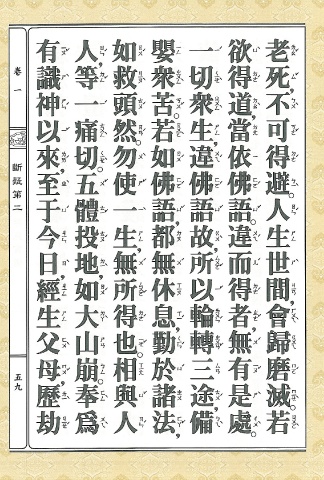 老死,不可得避。人生世間,會歸磨滅。若
欲得道,當依佛語,違而得者,無有是處。
一切衆生,違佛語故,所以輪轉三途,備
嬰衆苦。若如佛語,都無休息,勤於諸法,
如救頭然。勿使一生,無所得也。相與人
人,等一痛切。五體投地,如大山崩,奉爲
有識神以來,至于今日,經生父母,歷劫
卷一
斷疑第二
五九